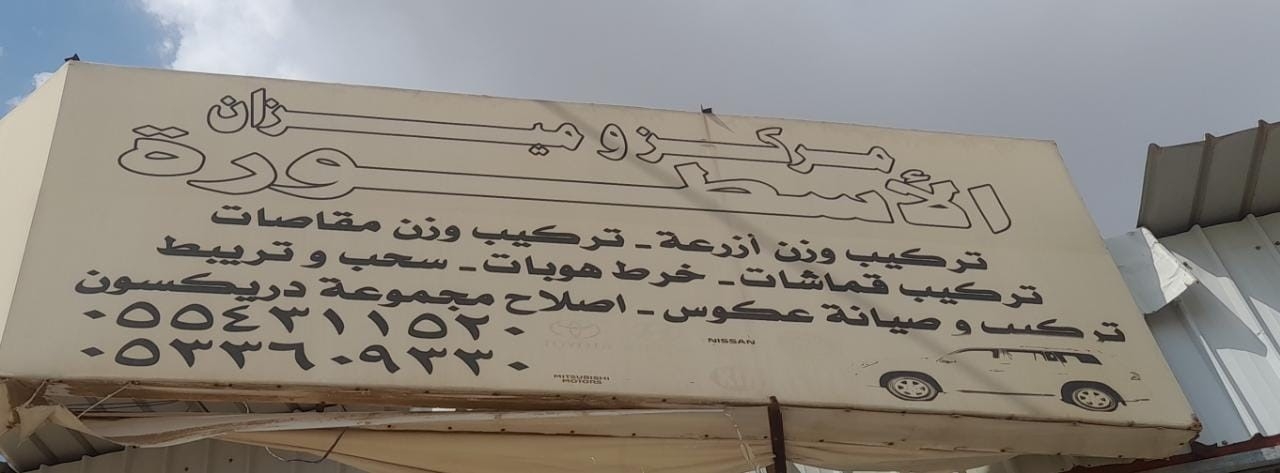 مركز و ميزان
الأسطورة
تركيب وزن أزرعة - تركيب وزن مقاصات
تركيب قماشات - خرط هوبات - سحب و تربيط
تركيب و صيانة عكوس - اصلاح مجموعة دريكسون
٠٥٥٤٣١١٥٢٠
٠٥٣٣٦٠٩٣٣٠
TOYOTA
NISSAN
MITSUBISHI
MOTORS